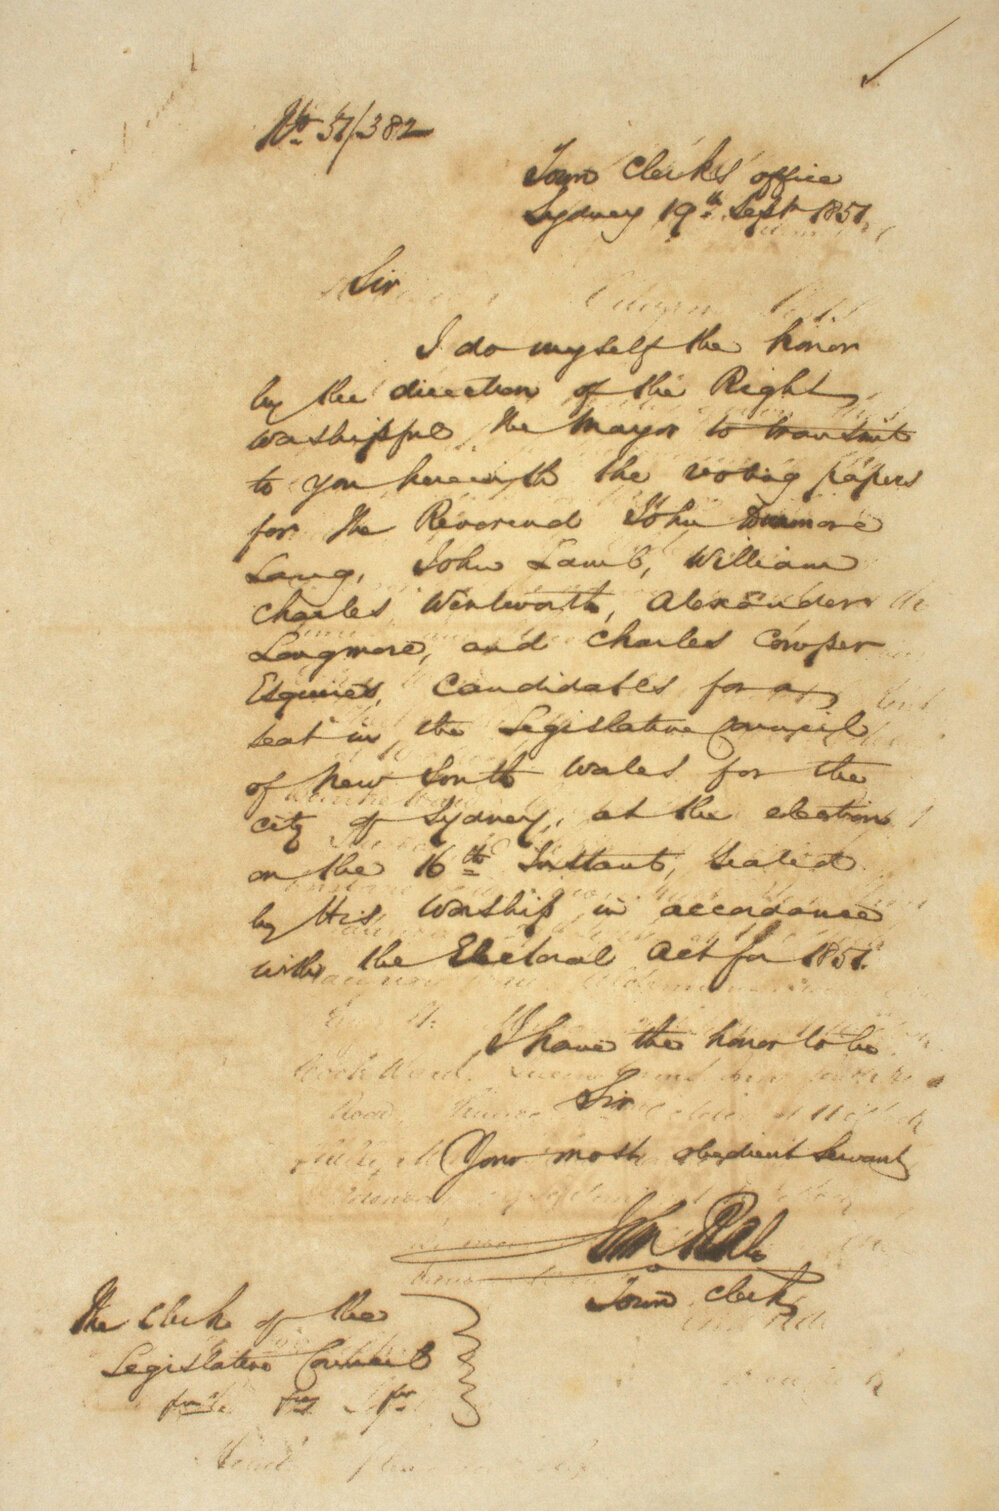 No. 51/382
Town Clerk's office
Sydney 19th Septr 1851.
Sir
I do myself the honor
by the direction of the Right
Worshipful the Mayor to transmit
to you herewith the voting papers
for the Reverend John Dunmore
Lang, John Lamb, William
Charles Wentworth, Alexander
Longmore, and Charles Cowper
Esquires, Candidates for a
seat in the Legislative Council
of New South Wales for the
City of Sydney, at the election
on the 16th Instant, Sealed
by His Worship in accordance
with the Electoral Act for 1851.
I have the honor to be
Sir
Your most obedient Servant
Town Clerk
The Clerk of the
Legislative Council